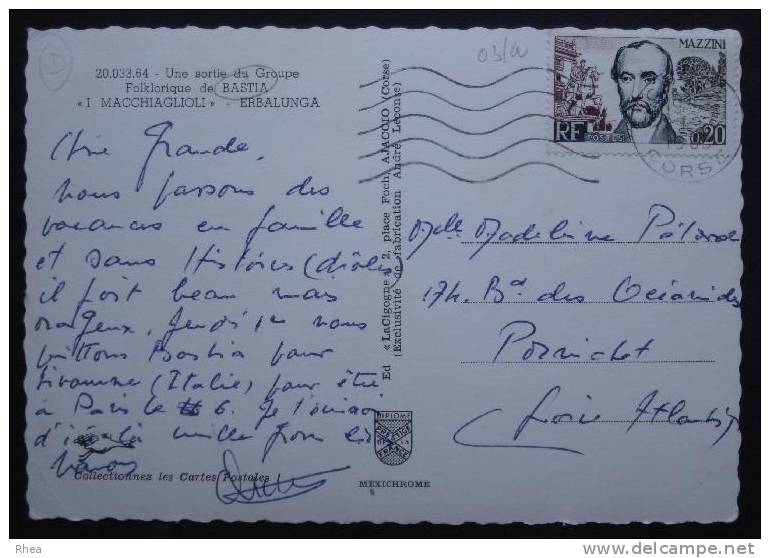 D
03/W
20.033.64 - Une sortie du Groupe
Folklorique de BASTIA
« I MACCHIAGLIOLI » - ERBALUNGA
MAZZINI
RF
POSTES
0,20
CORSE
Grande,
nous passons des
vacances en famille
et sans Histoires (drôles)
il fait beau mais
orageux, Jeudi 1er nous
quittons Bastia pour
(Italie) pour être
à Paris le 6. Je
d'ici là mille
Ed « LaCigogne », 2, place Foch, AJACCIO (Corse)
(Exclusivité de fabrication André Leconte)
Melle Madeleine
174. Bd des Océanides
Pornichet
Loire Atlantique
Collectionnez les Cartes Postales !
DIPLOME
PRESTIGE
DE LA
FRANCE
MEXICHROME
© Rhea
www.delcampe.net